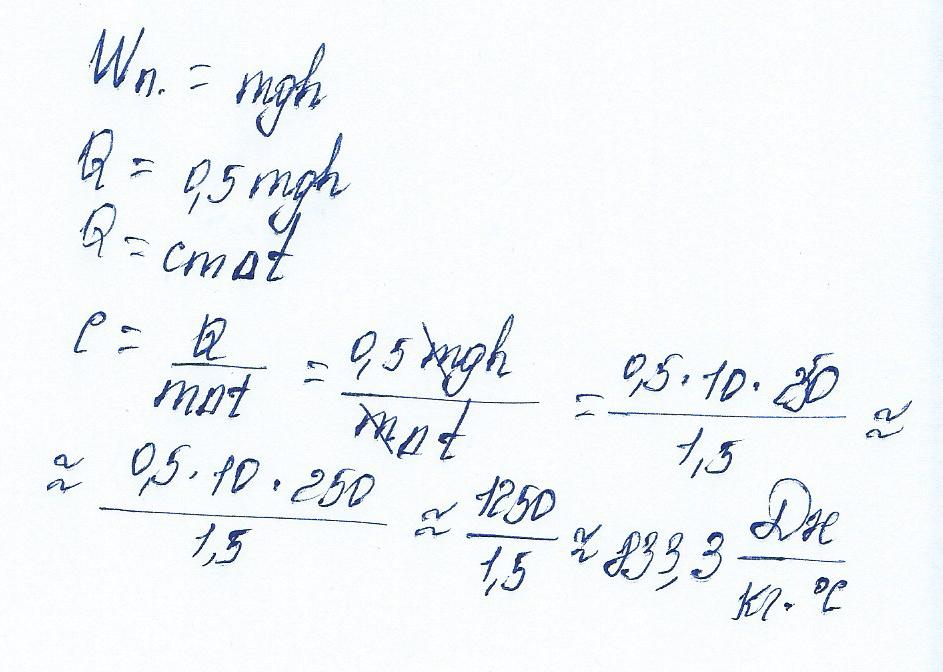 Wп. = mgh
Q = 0,5 mgh
Q = cmΔt
c = Q/mΔt = 0,5 mgh/mΔt = 0,5 · 10 · 250/1,5 ≈
≈ 0,5 · 10 · 250/1,5 ≈ 1250/1,5 ≈ 833,3 Дж/кг · °C